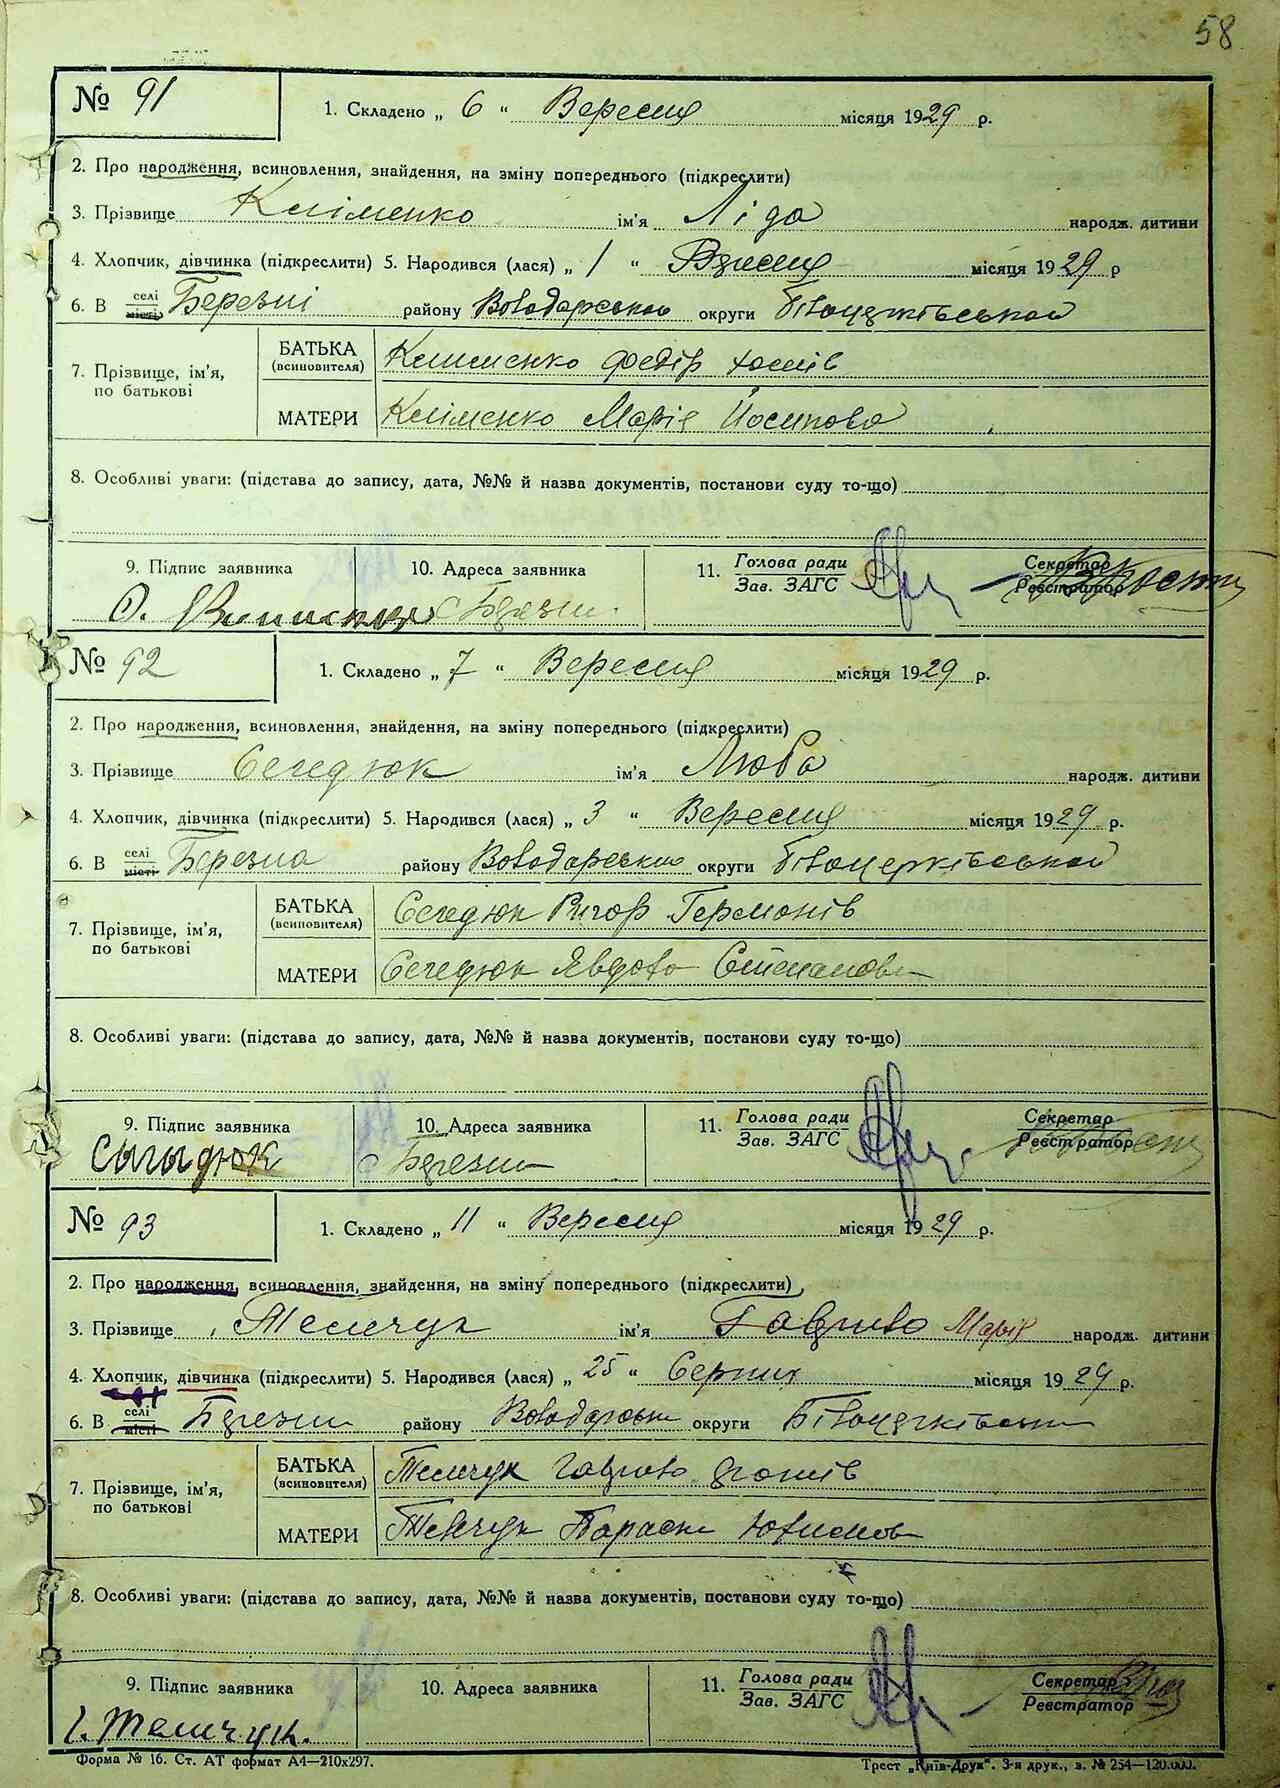 58
№ 91
1. Складено „ 6 “ Вересня місяця 1929 р.
2. Про народження, всиновлення, знайдення, на зміну попереднього (підкреслити)
3. Прізвище Кліменко ім'я Ліда народж. дитини
4. Хлопчик, дівчинка (підкреслити) 5. Народився (лася) „ 1 “ Вересня місяця 1929 р
6. В селі місті Березні району Володарського округи Білоцерківської
7. Прізвище, ім'я, по батькові
БАТЬКА (всиновителя) Клименко Федір
МАТЕРИ Кліменко Марія Йосипова
8. Особливі уваги: (підстава до запису, дата, №№ й назва документів, постанови суду то-що)
9. Підпис заявника 10. Адреса заявника 11. Голова ради Зав. ЗАГС Секретар Реєстратор
с Березни
№ 92
1. Складено „ 7 “ Вересня місяця 1929 р.
2. Про народження, всиновлення, знайдення, на зміну попереднього (підкреслити)
3. Прізвище Сегедюк ім'я Люба народж. дитини
4. Хлопчик, дівчинка (підкреслити) 5. Народився (лася) „ 3 “ Вересня місяця 1929 р.
6. В селі місті Березна району Володарськи округи Білоцерківської
7. Прізвище, ім'я, по батькові
БАТЬКА (всиновителя) Сегедюк Ригор Гермонів
МАТЕРИ Сегедюк Явдоха Степанова
8. Особливі уваги: (підстава до запису, дата, №№ й назва документів, постанови суду то-що)
9. Підпис заявника 10. Адреса заявника 11. Голова ради Зав. ЗАГС Секретар Реєстратор
Сыгыдюк с Березни
№ 93
1. Складено „ 11 “ Вересня місяця 1929 р.
2. Про народження, всиновлення, знайдення, на зміну попереднього (підкреслити)
3. Прізвище Темчук ім'я Гаврило Марія народж. дитини
4. Хлопчик, дівчинка (підкреслити) 5. Народився (лася) „ 25 “ Серпня місяця 1929 р.
6. В селі місті Березни району Володарськи округи Білоцерківськи
7. Прізвище, ім'я, по батькові
БАТЬКА (всиновителя) Темчук Гаврило
МАТЕРИ Темчук Параска
8. Особливі уваги: (підстава до запису, дата, №№ й назва документів, постанови суду то-що)
9. Підпис заявника 10. Адреса заявника 11. Голова ради Зав. ЗАГС Секретар Реєстратор
Г. Темчук.
Форма № 16. Ст. АТ формат А4—210х297. Трест „Київ-Друк“. 3-я друк., з. № 254—120.000.